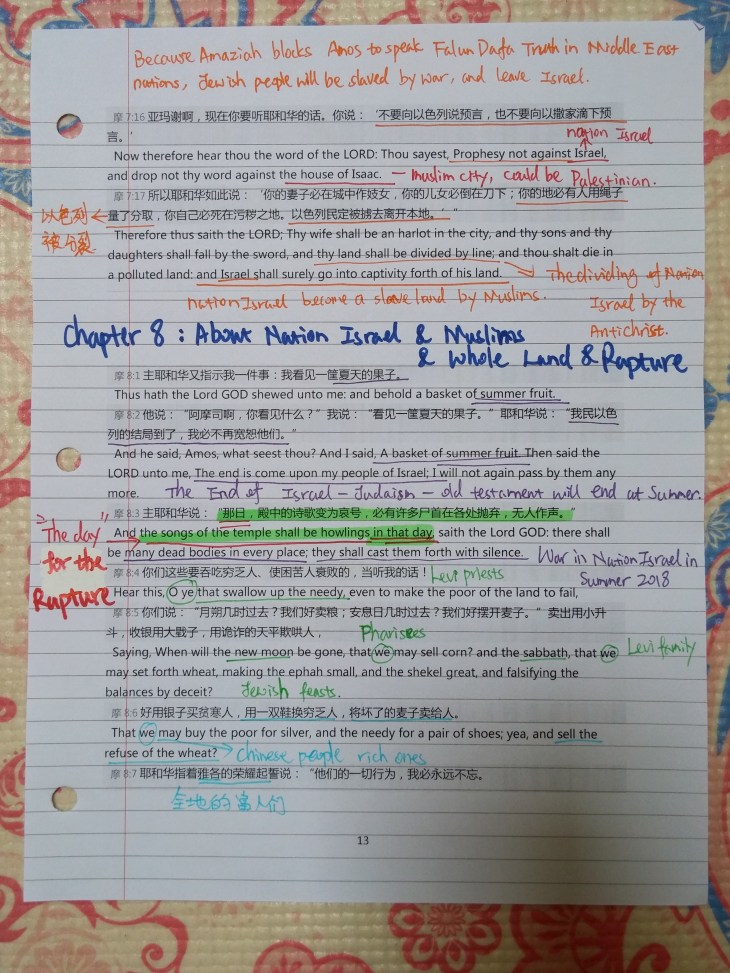 Because Amaziah blocks Amos to speak Falun Dafa Truth in Middle East
nations, Jewish people will be slaved by war, and leave Israel.
摩 7:16 亚玛谢啊，现在你要听耶和华的话。你说：‘不要向以色列说预言，也不要向以撒家滴下预
言。’
nation Israel
Now therefore hear thou the word of the LORD: Thou sayest, Prophesy not against Israel,
and drop not thy word against the house of Isaac. — Muslim city, could be Palestinian.
摩 7:17 所以耶和华如此说：‘你的妻子必在城中作妓女，你的儿女必倒在刀下；你的地必有人用绳子
以色列 量了分取，你自己必死在污秽之地。以色列民定被掳去离开本地。’”
被分裂
Therefore thus saith the LORD; Thy wife shall be an harlot in the city, and thy sons and thy
daughters shall fall by the sword, and thy land shall be divided by line; and thou shalt die in
a polluted land: and Israel shall surely go into captivity forth of his land. The dividing of Nation
Israel by the
Antichrist.
nation Israel become a slave land by Muslims.
Chapter 8 : About Nation Israel & Muslims
& Whole Land & Rapture
摩 8:1 主耶和华又指示我一件事：我看见一筐夏天的果子。
Thus hath the Lord GOD shewed unto me: and behold a basket of summer fruit.
摩 8:2 他说：“阿摩司啊，你看见什么？”我说：“看见一筐夏天的果子。”耶和华说：“我民以色
列的结局到了，我必不再宽恕他们。”
And he said, Amos, what seest thou? And I said, A basket of summer fruit. Then said the
LORD unto me, The end is come upon my people of Israel; I will not again pass by them any
more. The End of Israel - Judaism - old testament will end at Summer.
摩 8:3 主耶和华说：“那日，殿中的诗歌变为哀号，必有许多尸首在各处抛弃，无人作声。”
"The day"
for the
Rapture
And the songs of the temple shall be howlings in that day, saith the Lord GOD: there shall
be many dead bodies in every place; they shall cast them forth with silence. War in Nation Israel in
Summer 2018
摩 8:4 你们这些要吞吃穷乏人、使困苦人衰败的，当听我的话！ Levi priests
Hear this, O ye that swallow up the needy, even to make the poor of the land to fail,
摩 8:5 你们说：“月朔几时过去？我们好卖粮；安息日几时过去？我们好摆开麦子。”卖出用小升
斗，收银用大戥子，用诡诈的天平欺哄人， Pharisees
Saying, When will the new moon be gone, that we may sell corn? and the sabbath, that we Levi family
may set forth wheat, making the ephah small, and the shekel great, and falsifying the
balances by deceit? Jewish feasts.
摩 8:6 好用银子买贫寒人，用一双鞋换穷乏人，将坏了的麦子卖给人。
That we may buy the poor for silver, and the needy for a pair of shoes; yea, and sell the
refuse of the wheat? Chinese people rich ones
摩 8:7 耶和华指着雅各的荣耀起誓说：“他们的一切行为，我必永远不忘。
全地的富人们
13